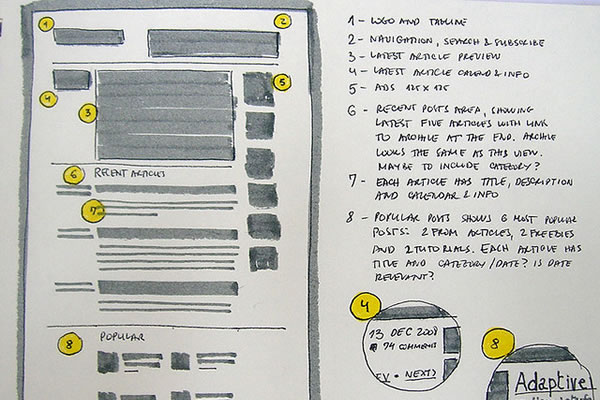 1
2
4
3
5
6 RECENT ARTICLES
7
8 POPULAR
1 - LOGO AND TAGLINE
2 - NAVIGATION, SEARCH & SUBSCRIBE
3 - LATEST ARTICLE PREVIEW
4 - LATEST ARTICLE CALEND & INFO
5 - ADS 125 X 125
6 - RECENT POSTS AREA, SHOWING
LATEST FIVE ARTICLES WITH LINK
TO ARCHIVE AT THE END. ARCHIVE
LOOKS THE SAME AS THIS VIEW.
MAYBE TO INCLUDE CATEGORY?
7 - EACH ARTICLE HAS TITLE, DESCRIPTION
AND CALENDAR & INFO
8 - POPULAR POSTS SHOWS 6 MOST POPULAR
POSTS: 2 FROM ARTICLES, 2 FREEBIES
AND 2 TUTORIALS. EACH ARTICLE HAS
TITLE AND CATEGORY/DATE? IS DATE
RELEVANT?
4
13 DEC 2008
74 COMMENTS
EV • NEXT>
8
Adaptive